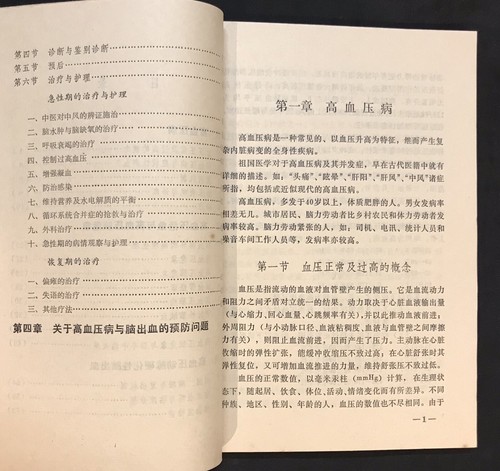 第四节 诊断与鉴别诊断
第五节 预后
第六节 治疗与护理
急性期的治疗与护理
一、中医对中风的辨证施治
二、脑水肿与脑缺氧的治疗
三、呼吸衰竭的治疗
四、控制过高血压
五、增强凝血
六、防治感染
七、维持营养及水电解质的平衡
八、循环系统合并症的抢救与治疗
九、外科治疗
十、急性期的病情观察与护理
恢复期的治疗
一、偏瘫的治疗
二、失语的治疗
三、其他疗法
第四章 关于高血压病与脑出血的预防问题
第一章 高血压病
高血压病是一种常见的、以血压升高为特征，继而产生复
杂内脏病变的全身性疾病。
祖国医学对于高血压病及其并发症，早在古代医籍中就有
详细的描述。如：“头痛”、“眩晕”、“肝阳”、“肝风”、“中风”诸症
所指，均包括或近似现代的高血压病。
高血压病，多发于40岁以上，体质肥胖的人。男女发病率
相差无几。城市居民、脑力劳动者比乡村农民和体力劳动者发
病率较高。脑力劳动紧张的人，如：司机、电讯、统计人员和
噪音车间工作人员等，发病率亦较高。
第一节 血压正常及过高的概念
血压是指流动的血液对血管壁产生的侧压。它是血流动力
和阻力之间矛盾对立统一的结果。动力取决于心脏血液输出量
（与心缩力、回心血量、心跳频率有关），并以此推动血液前进；
外周阻力（与小动脉口径、血液粘稠度、血液与血管壁之间摩擦
力有关），则阻止血流前进，因而产生了压力。主动脉在心脏
收缩时的弹性扩张，能缓冲收缩压不致过高，在心脏舒张时其
弹性复位，又可增加血流推进的力量，维持舒张压不致过低。
血压的正常数值，以毫米汞柱（mmHg）计算，在生理状
态下，随起居、饮食、体位、活动、情绪变化而有所差异。不同
种族、地区、性别、年龄的人，血压的数值也不尽相同。由于
—1—